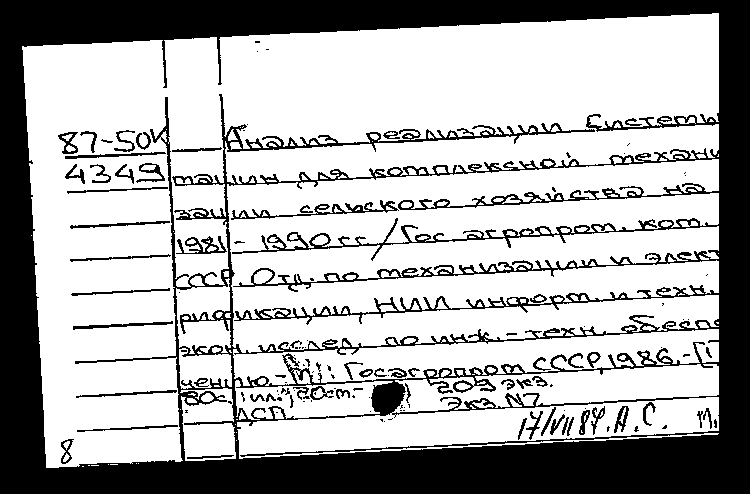 87-50к Анализ реализации Системы
4349 машин для комплексной механи
зации сельского хозяйства на
1981 - 1990 гг. / Гос. агропром. ком.
СССР. Отд. по механизации и элект
рификации, НИИ информ. и техн.
экон. исслед. по инж.-техн. обеспе
чению. - М.: Госагропром СССР, 1986. - [1]
80с. ил.; 20см. - 209 экз.
ДСП. Экз. N7.
17/VII 87. А.С. м.
8